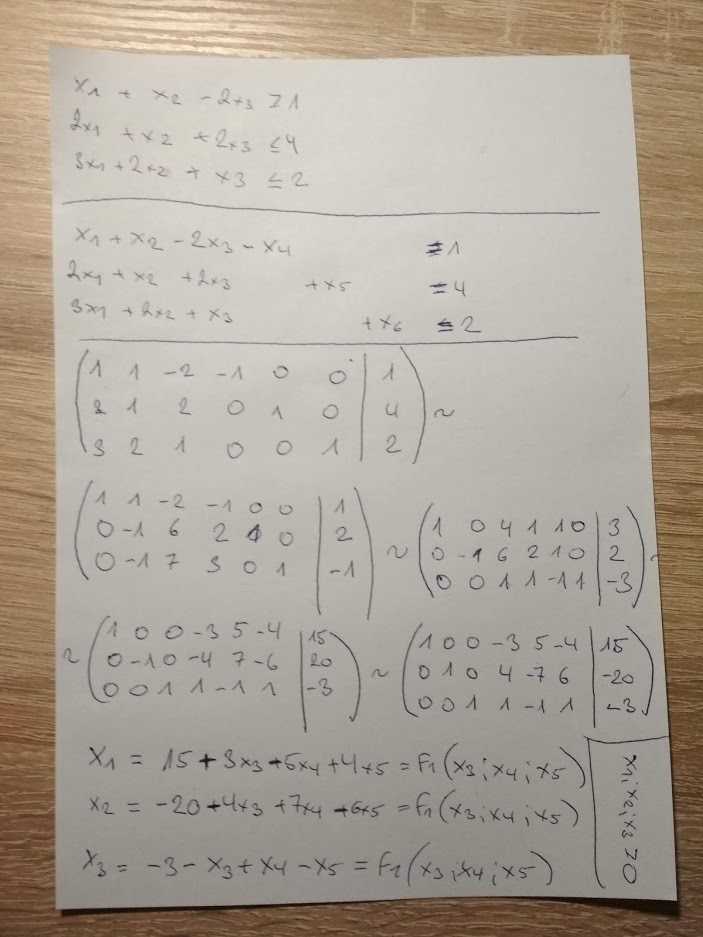 x1 + x2 - 2x3 ≥ 1
2x1 + x2 + 2x3 ≤ 4
3x1 + 2x2 + x3 ≤ 2
x1 + x2 - 2x3 - x4 = 1
2x1 + x2 + 2x3 + x5 = 4
3x1 + 2x2 + x3 + x6 = 2
( 1 1 -2 -1 0 0 | 1 )
( 2 1 2 0 1 0 | 4 ) ~
( 3 2 1 0 0 1 | 2 )
( 1 1 -2 -1 0 0 | 1 )
( 0 -1 6 2 1 0 | 2 ) ~
( 0 -1 7 3 0 1 | -1 )
( 1 0 4 1 1 0 | 3 )
( 0 -1 6 2 1 0 | 2 ) ~
( 0 0 1 1 -1 1 | -3 )
( 1 0 0 -3 5 -4 | 15 )
~ ( 0 -1 0 -4 7 -6 | 20 ) ~
( 0 0 1 1 -1 1 | -3 )
( 1 0 0 -3 5 -4 | 15 )
( 0 1 0 4 -7 6 | -20 )
( 0 0 1 1 -1 1 | -3 )
x1 = 15 + 3x3 + 5x4 + 4x5 = f1(x3; x4; x5)
x2 = -20 + 4x3 + 7x4 + 6x5 = f1(x3; x4; x5)
x3 = -3 - x3 + x4 - x5 = f1(x3; x4; x5)
x1; x2; x3 ≥ 0